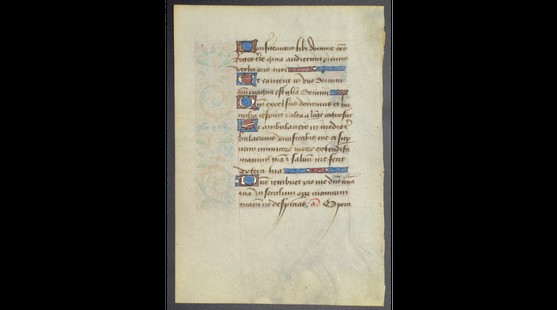 Confiteantur tibi domine om̄s
reges t̄re quia audierunt omnia
verba oris tui
Et cantent in viis domini
qm̄ magna est gl̄ia domini
Qm̄ excelsus dominus et hu
milia respicit et alta a longe cognoscit
Si ambulavero in medio t
bulationis vivificabis me et sup
iram inimicor meor extendisti
manum tuā et salvum me fecit
dextera tua
Dn̄s retribuet pro me dn̄e mīa
tua in seculum opa manuum
tuarum ne despicias